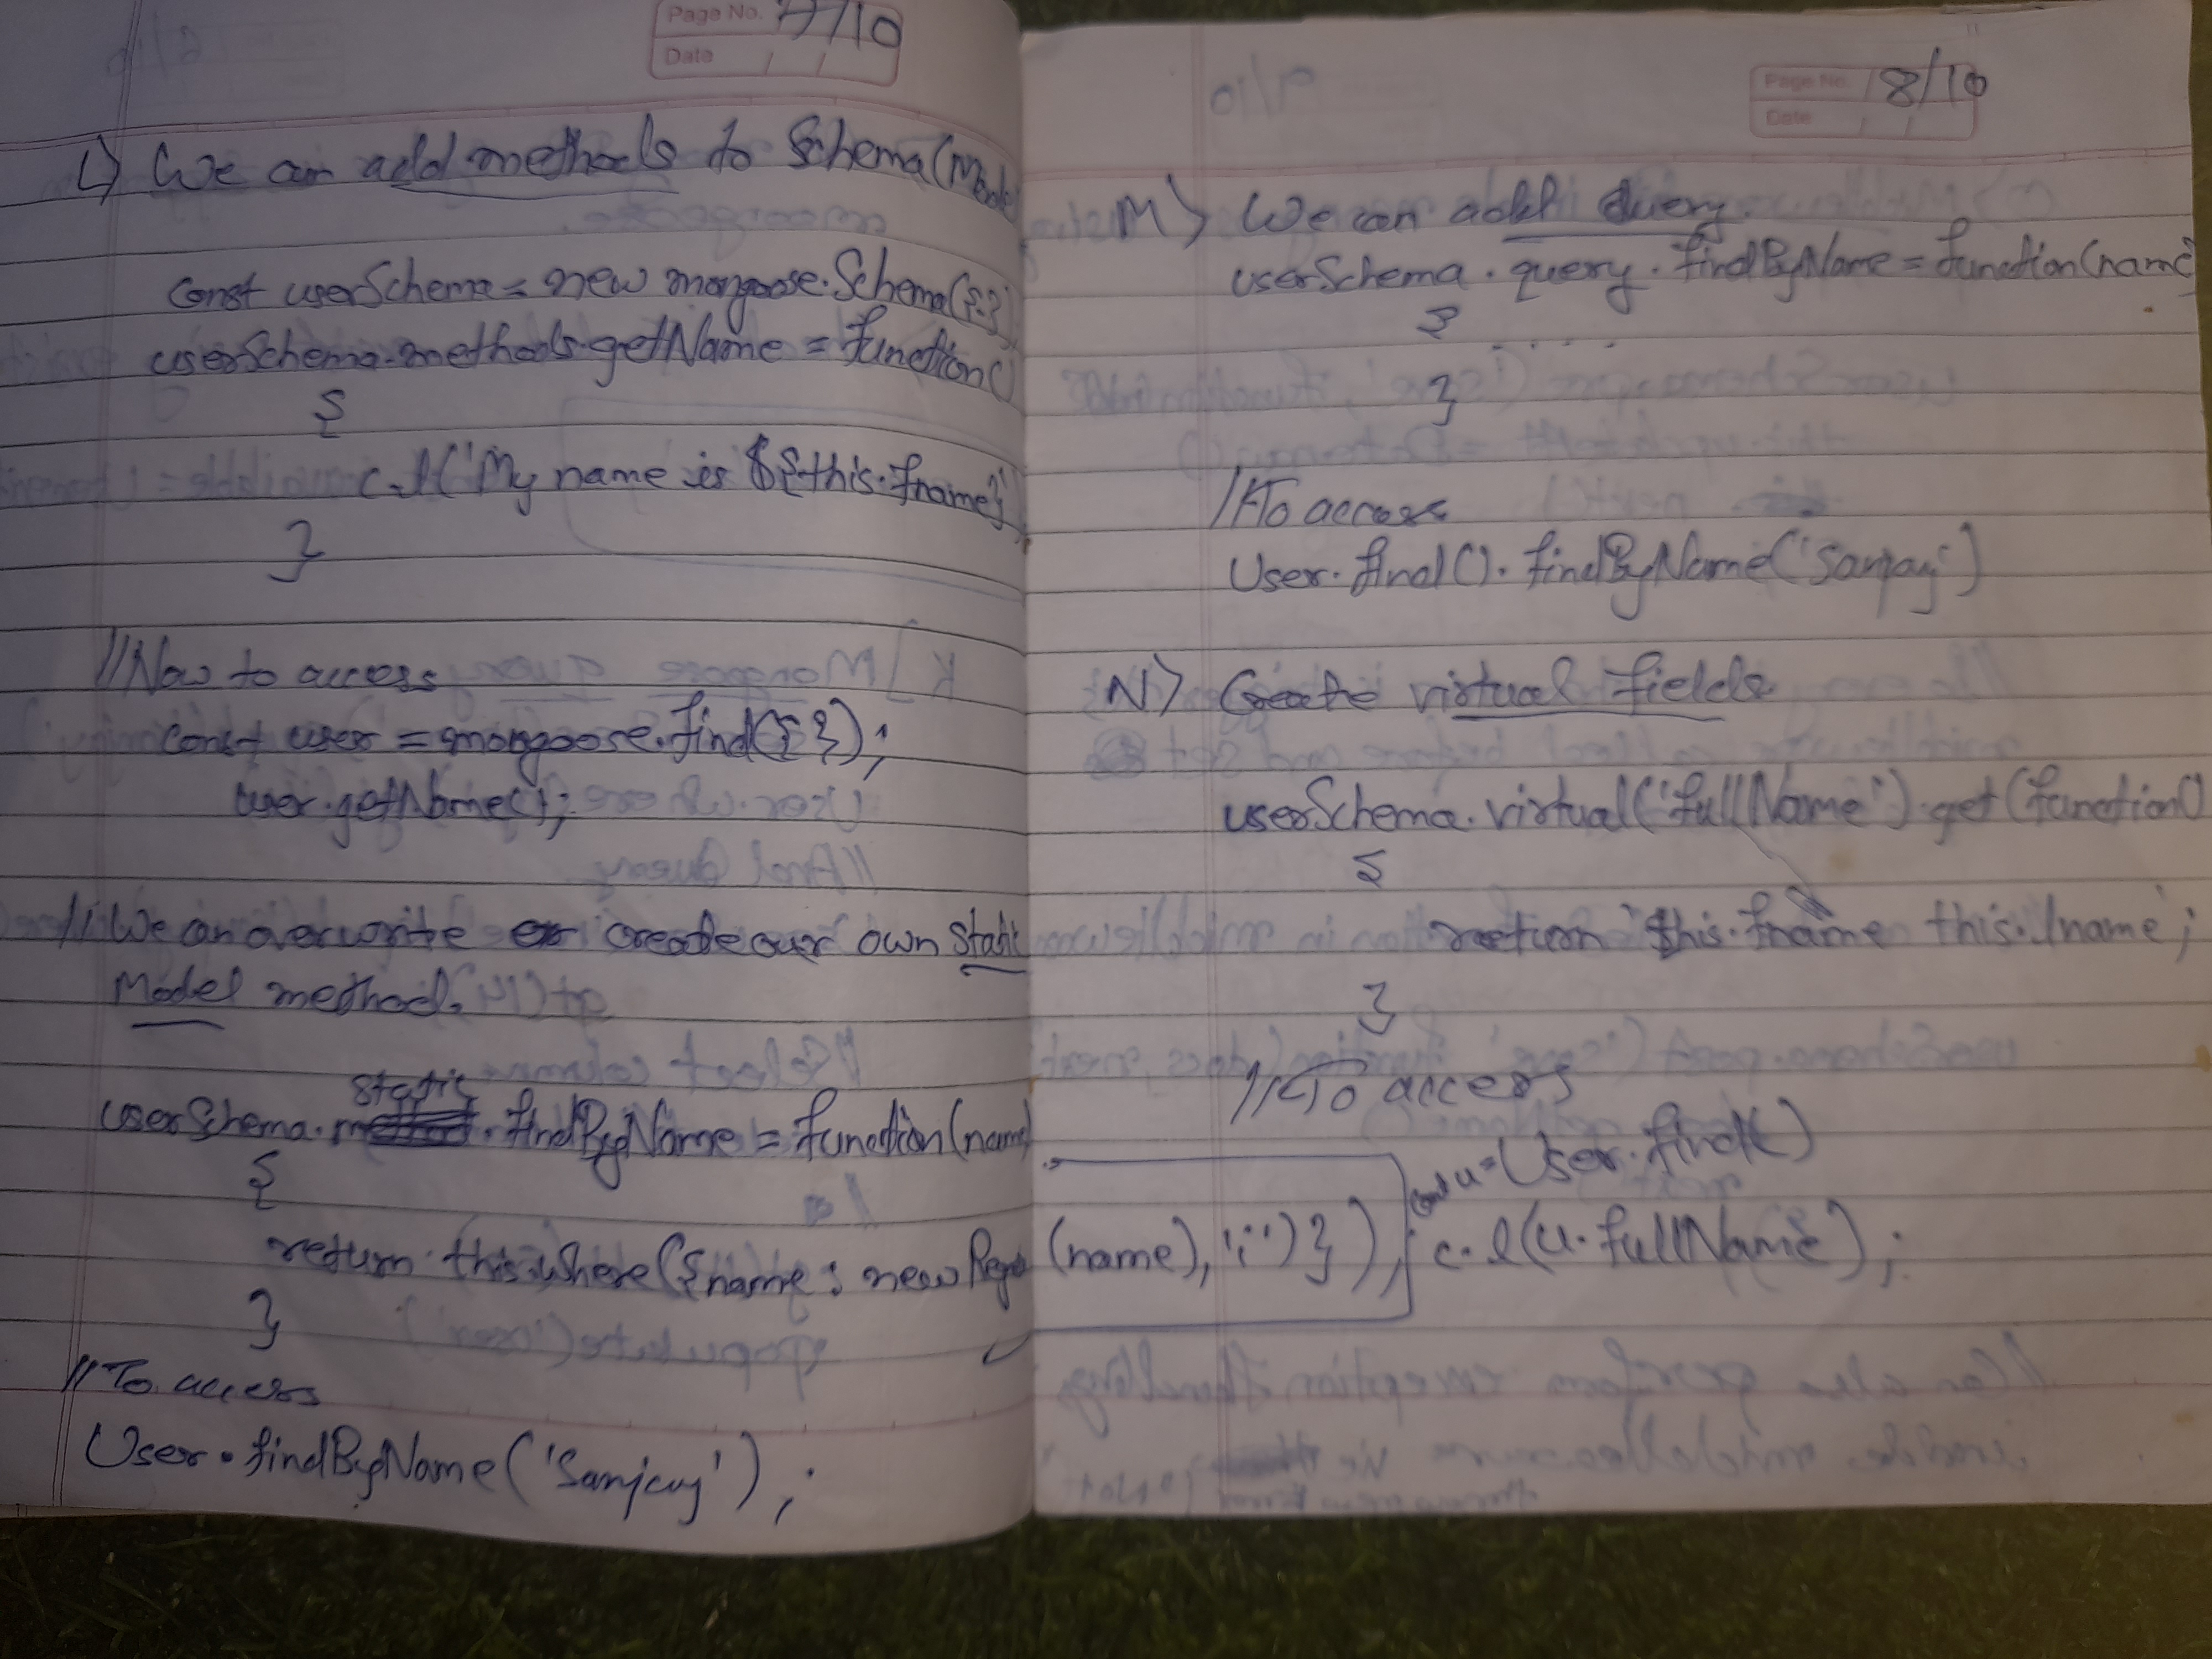 Page No. 7/10
Date / /
L> We can add methods to Schema(Model
const userSchema = new mongoose.Schema({-})
userSchema.methods.getName = function()
{
c.l('My name is ${this.fname}'
}
//Now to access
const user = mongoose.find({ });
user.getName();
//We can overwrite or create our own static
Model method.
static
userSchema. .findByName = function(name)
{
return this.where({name : new Regex(name), 'i')});
}
//To access
User.findByName('Sanjay');
Page No. 8/10
Date / /
M> We can add Query.
userSchema.query.findByName = function(name
{
. . . . .
}
//To access
User.find().findByName('Sanjay')
N> Create virtual fields
userSchema.virtual('fullName').get(function()
{
return this.fname this.lname;
}
//To access
const u = User.find()
c.l(u.fullName);